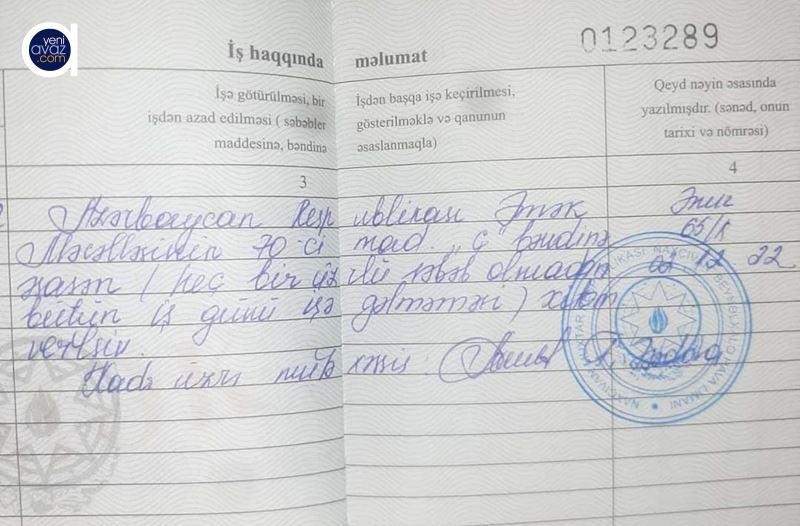 yeni
avaz
.com
İş haqqında məlumat
0123289
İşə götürülməsi, bir
işdən azad edilməsi ( səbəblər
maddesinə, bəndinə
İşdən başqa işə keçirilmesi,
gösterilməklə və qanunun
əsaslanmaqla)
Qeyd nəyin əsasında
yazılmışdır. (sənəd, onun
tarixi və nömrəsi)
3
4
Azərbaycan Respublikası Əmək
Məcəlləsinin 70-ci mad. "ç" bəndinə
əsasən ( heç bir üzrlü səbəb olmadan
bütün iş günü işə gəlməməsi ) xitam
verilsin.
Kadr üzrə mütəxəssis:
Əmr
65/k
12 22